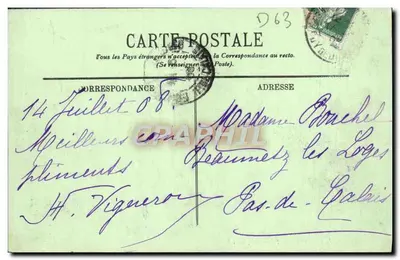 D63
CARTE POSTALE
Tous les Pays étrangers n'acceptent pas la Correspondance au recto.
(Se renseigner à la Poste).
CORRESPONDANCE
ADRESSE
14 Juillet 08
Meilleurs com
pliments
H. Vigneron
Madame Bouchel
Beaumetz les Loges
Pas-de-Calais